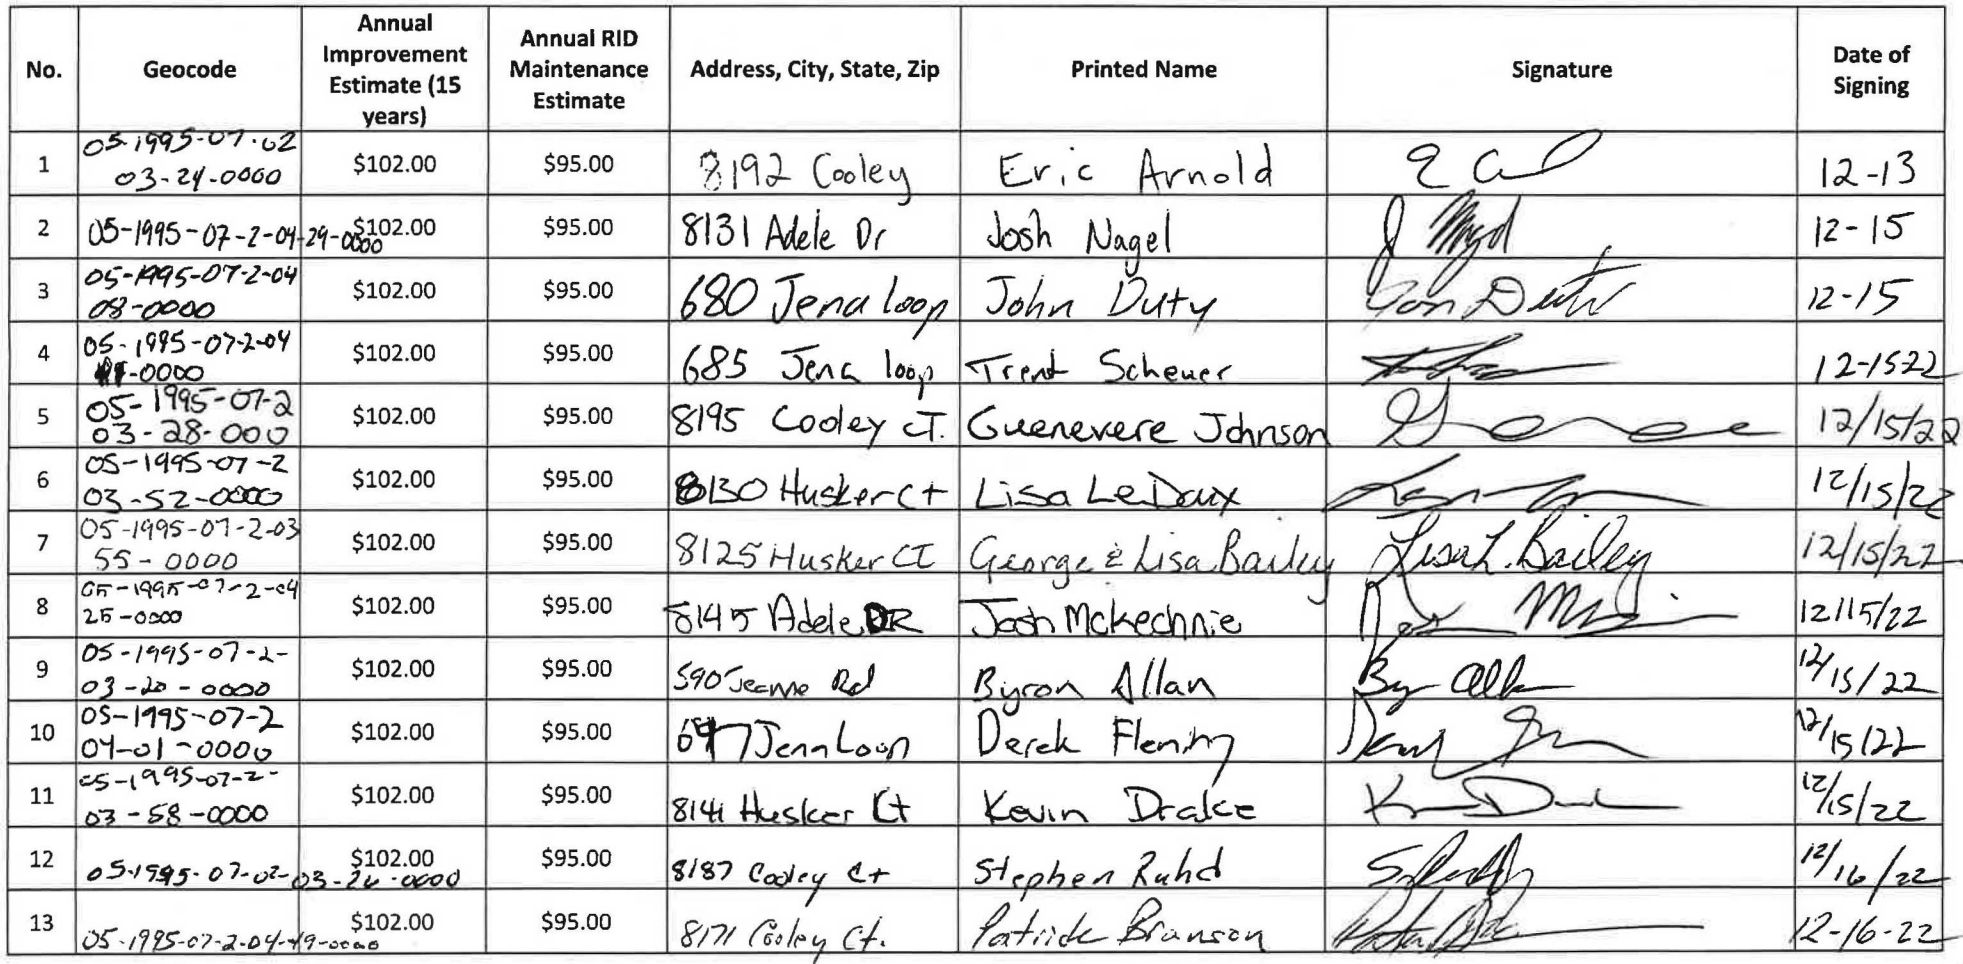 No. Geocode Annual Improvement Estimate (15 years) Annual RID Maintenance Estimate Address, City, State, Zip Printed Name Signature Date of Signing
1 05-1995-07-02 03-24-0000 $102.00 $95.00 8192 Cooley Eric Arnold 12-13
2 05-1995-07-2-04-29-0000 $102.00 $95.00 8131 Adele Dr Josh Nagel 12-15
3 05-1995-07-2-04 08-0000 $102.00 $95.00 680 Jena loop John Duty 12-15
4 05-1995-07-2-04 -0000 $102.00 $95.00 685 Jena loop Trent Scheuer 12-1522
5 05-1995-07-2 03-28-000 $102.00 $95.00 8195 Cooley CT. Guenevere Johnson 12/15/22
6 05-1995-07-2 03-52-0000 $102.00 $95.00 8130 Husker Ct Lisa LeDoux 12/15/22
7 05-1995-07-2-03 55-0000 $102.00 $95.00 8125 Husker CT George & Lisa Bailey Lisa L. Bailey 12/15/22
8 05-1995-07-2-04 25-0000 $102.00 $95.00 8145 Adele DR Josh McKechnie 12/15/22
9 05-1995-07-2- 03-20-0000 $102.00 $95.00 590 Jeanne Rd Byron Allan 12/15/22
10 05-1995-07-2 04-01-0000 $102.00 $95.00 Jena Loop Derek Fleming 12/15/22
11 05-1995-07-2- 03-58-0000 $102.00 $95.00 8141 Husker Ct Kevin Drake 12/15/22
12 05-1995-07-02-03-26-0000 $102.00 $95.00 8187 Cooley Ct Stephen Ruhd 12/16/22
13 05-1995-07-2-04-49-0000 $102.00 $95.00 8171 Cooley Ct. Patrick Branson 12-16-22